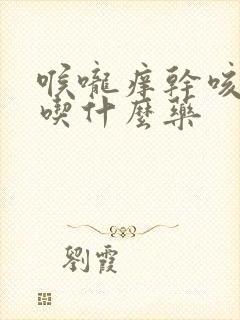 喉嚨痒幹咳
喫什麼藥
劉霞